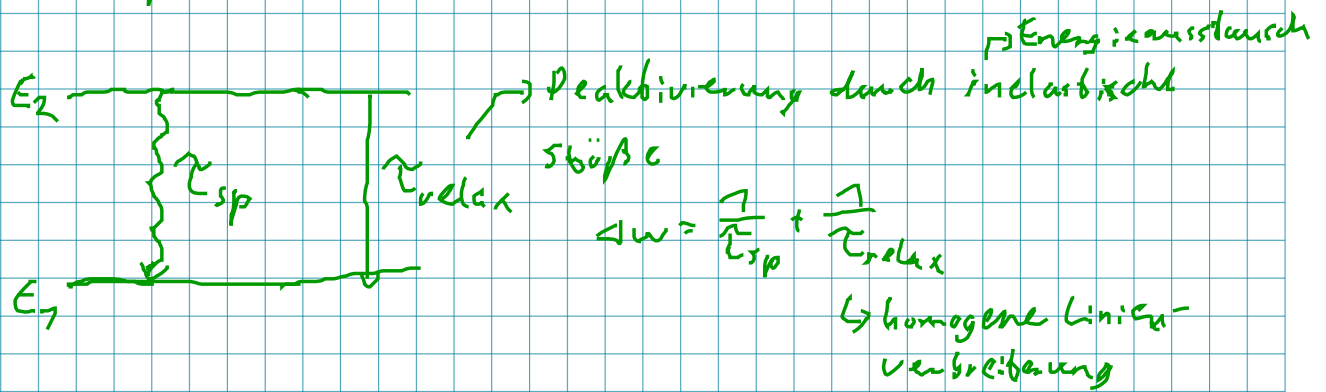 ↳ Energieausstausch
E₂
↳ Deaktivierung durch inelastische
Stöße
τ_sp
τ_relax
Δω = 1/τ_sp + 1/τ_relax
E₁
↳ homogene Linien-
verbreiterung